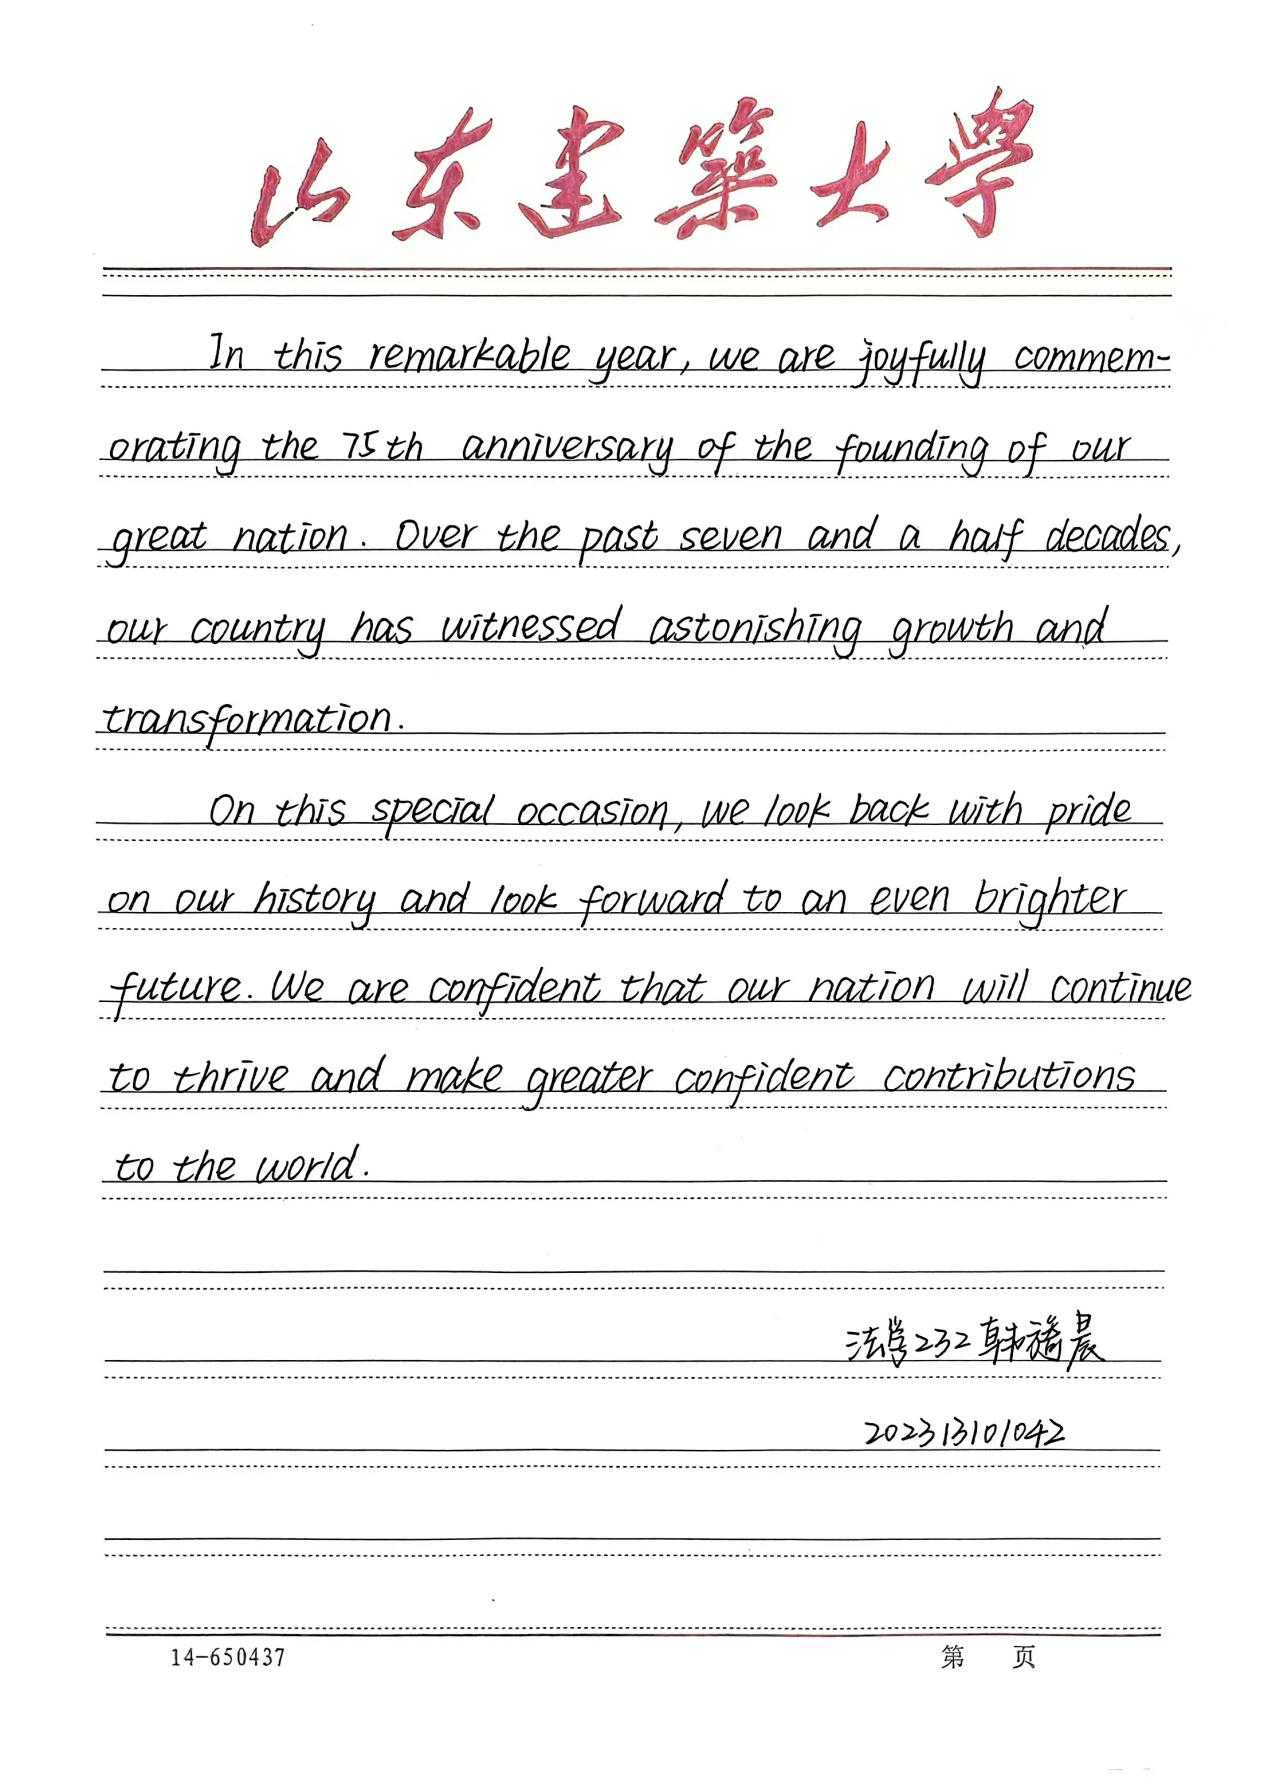 山东建筑大学
In this remarkable year, we are joyfully commem-
orating the 75th anniversary of the founding of our
great nation. Over the past seven and a half decades,
our country has witnessed astonishing growth and
transformation.
On this special occasion, we look back with pride
on our history and look forward to an even brighter
future. We are confident that our nation will continue
to thrive and make greater confident contributions
to the world.
法学232 韩晨
202313101042
14-650437
第 页